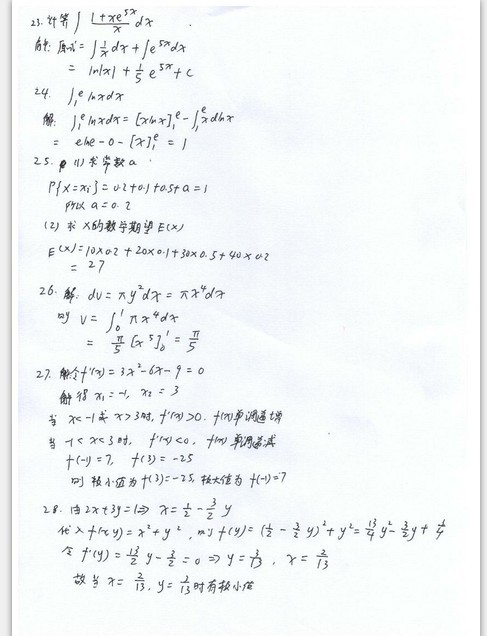 23. 计算 ∫ (1+xe^{5x})/x dx
解: 原式 = ∫ 1/x dx + ∫ e^{5x} dx
= ln|x| + 1/5 e^{5x} + c
24. ∫_1^e lnxdx
解: ∫_1^e lnxdx = [xlnx]_1^e - ∫_1^e xdlnx
= elne - 0 - [x]_1^e = 1
25. (1) 求常数a.
P{X=xi} = 0.2+0.1+0.5+a = 1
所以 a = 0.2
(2) 求X的数学期望E(X)
E(X) = 10×0.2 + 20×0.1 + 30×0.5 + 40×0.2
= 27
26. 解: dv = πy²dx = πx⁴dx
则 V = ∫_0^1 πx⁴dx
= π/5 [x⁵]_0^1 = π/5
27. 解:令f'(x) = 3x²-6x-9 = 0
解得 x₁=-1, x₂=3
当 x<-1或x>3时, f'(x)>0. f(x)单调递增
当 -1<x<3时, f'(x)<0, f(x)单调递减
f(-1)=7, f(3)=-25
则极小值为f(3)=-25, 极大值为f(-1)=7
28. 由2x+3y=1⇒ x = 1/2 - 3/2 y
代入f(x,y) = x²+y², 则f(y) = (1/2 - 3/2 y)² + y² = 13/4 y² - 3/2 y + 1/4
令f'(y) = 13/2 y - 3/2 = 0 ⇒ y = 3/13, x = 2/13
故当 x = 2/13, y = 3/13时有极小值